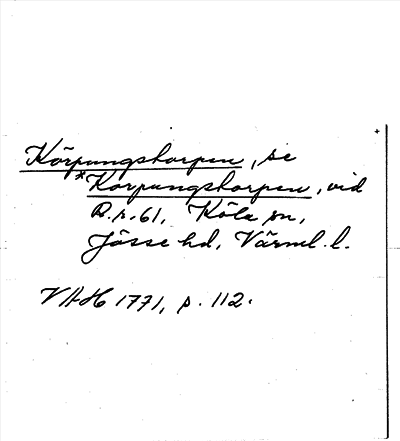 Körpungstorpen, se
*Korpungstorpen, vid
R.r. 61, Köla sn,
Jösse hd, Värml. l.
VAH 1771, p. 112.